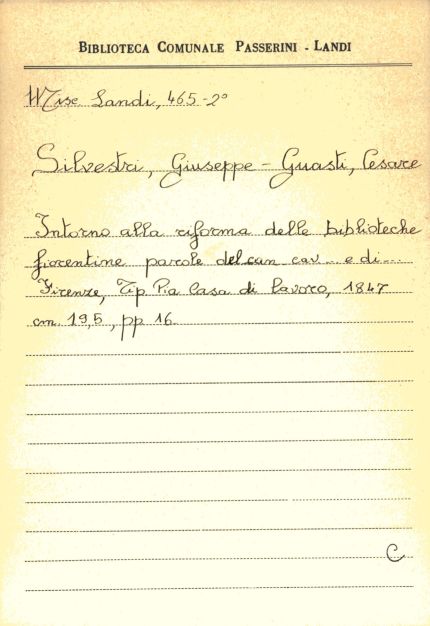 BIBLIOTECA COMUNALE PASSERINI - LANDI
Misc Landi, 465-2°
Silvestri, Giuseppe - Guasti, Cesare
Intorno alla riforma delle biblioteche
fiorentine parole del can cav... e di...
Firenze, Tip. Pia Casa di Lavoro, 1847
cm. 19,5, pp 16
C